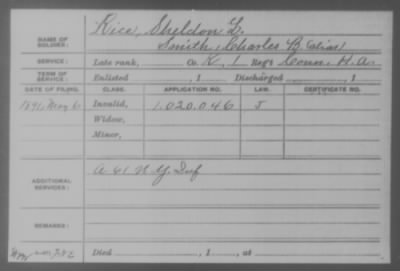 NAME OF SOLDIER: Rice, Sheldon L.
Smith, Charles B. (alias)
SERVICE: Late rank, Co. K, 1 Reg't Conn. H. A.
TERM OF SERVICE: Enlisted , 1 Discharged , 1
DATE OF FILING. CLASS. APPLICATION NO. LAW. CERTIFICATE NO.
1891, May 6 Invalid, 1.020.046 J
Widow,
Minor,
ADDITIONAL SERVICES: A 61 N.Y. Inf
REMARKS:
Died , 1 , at